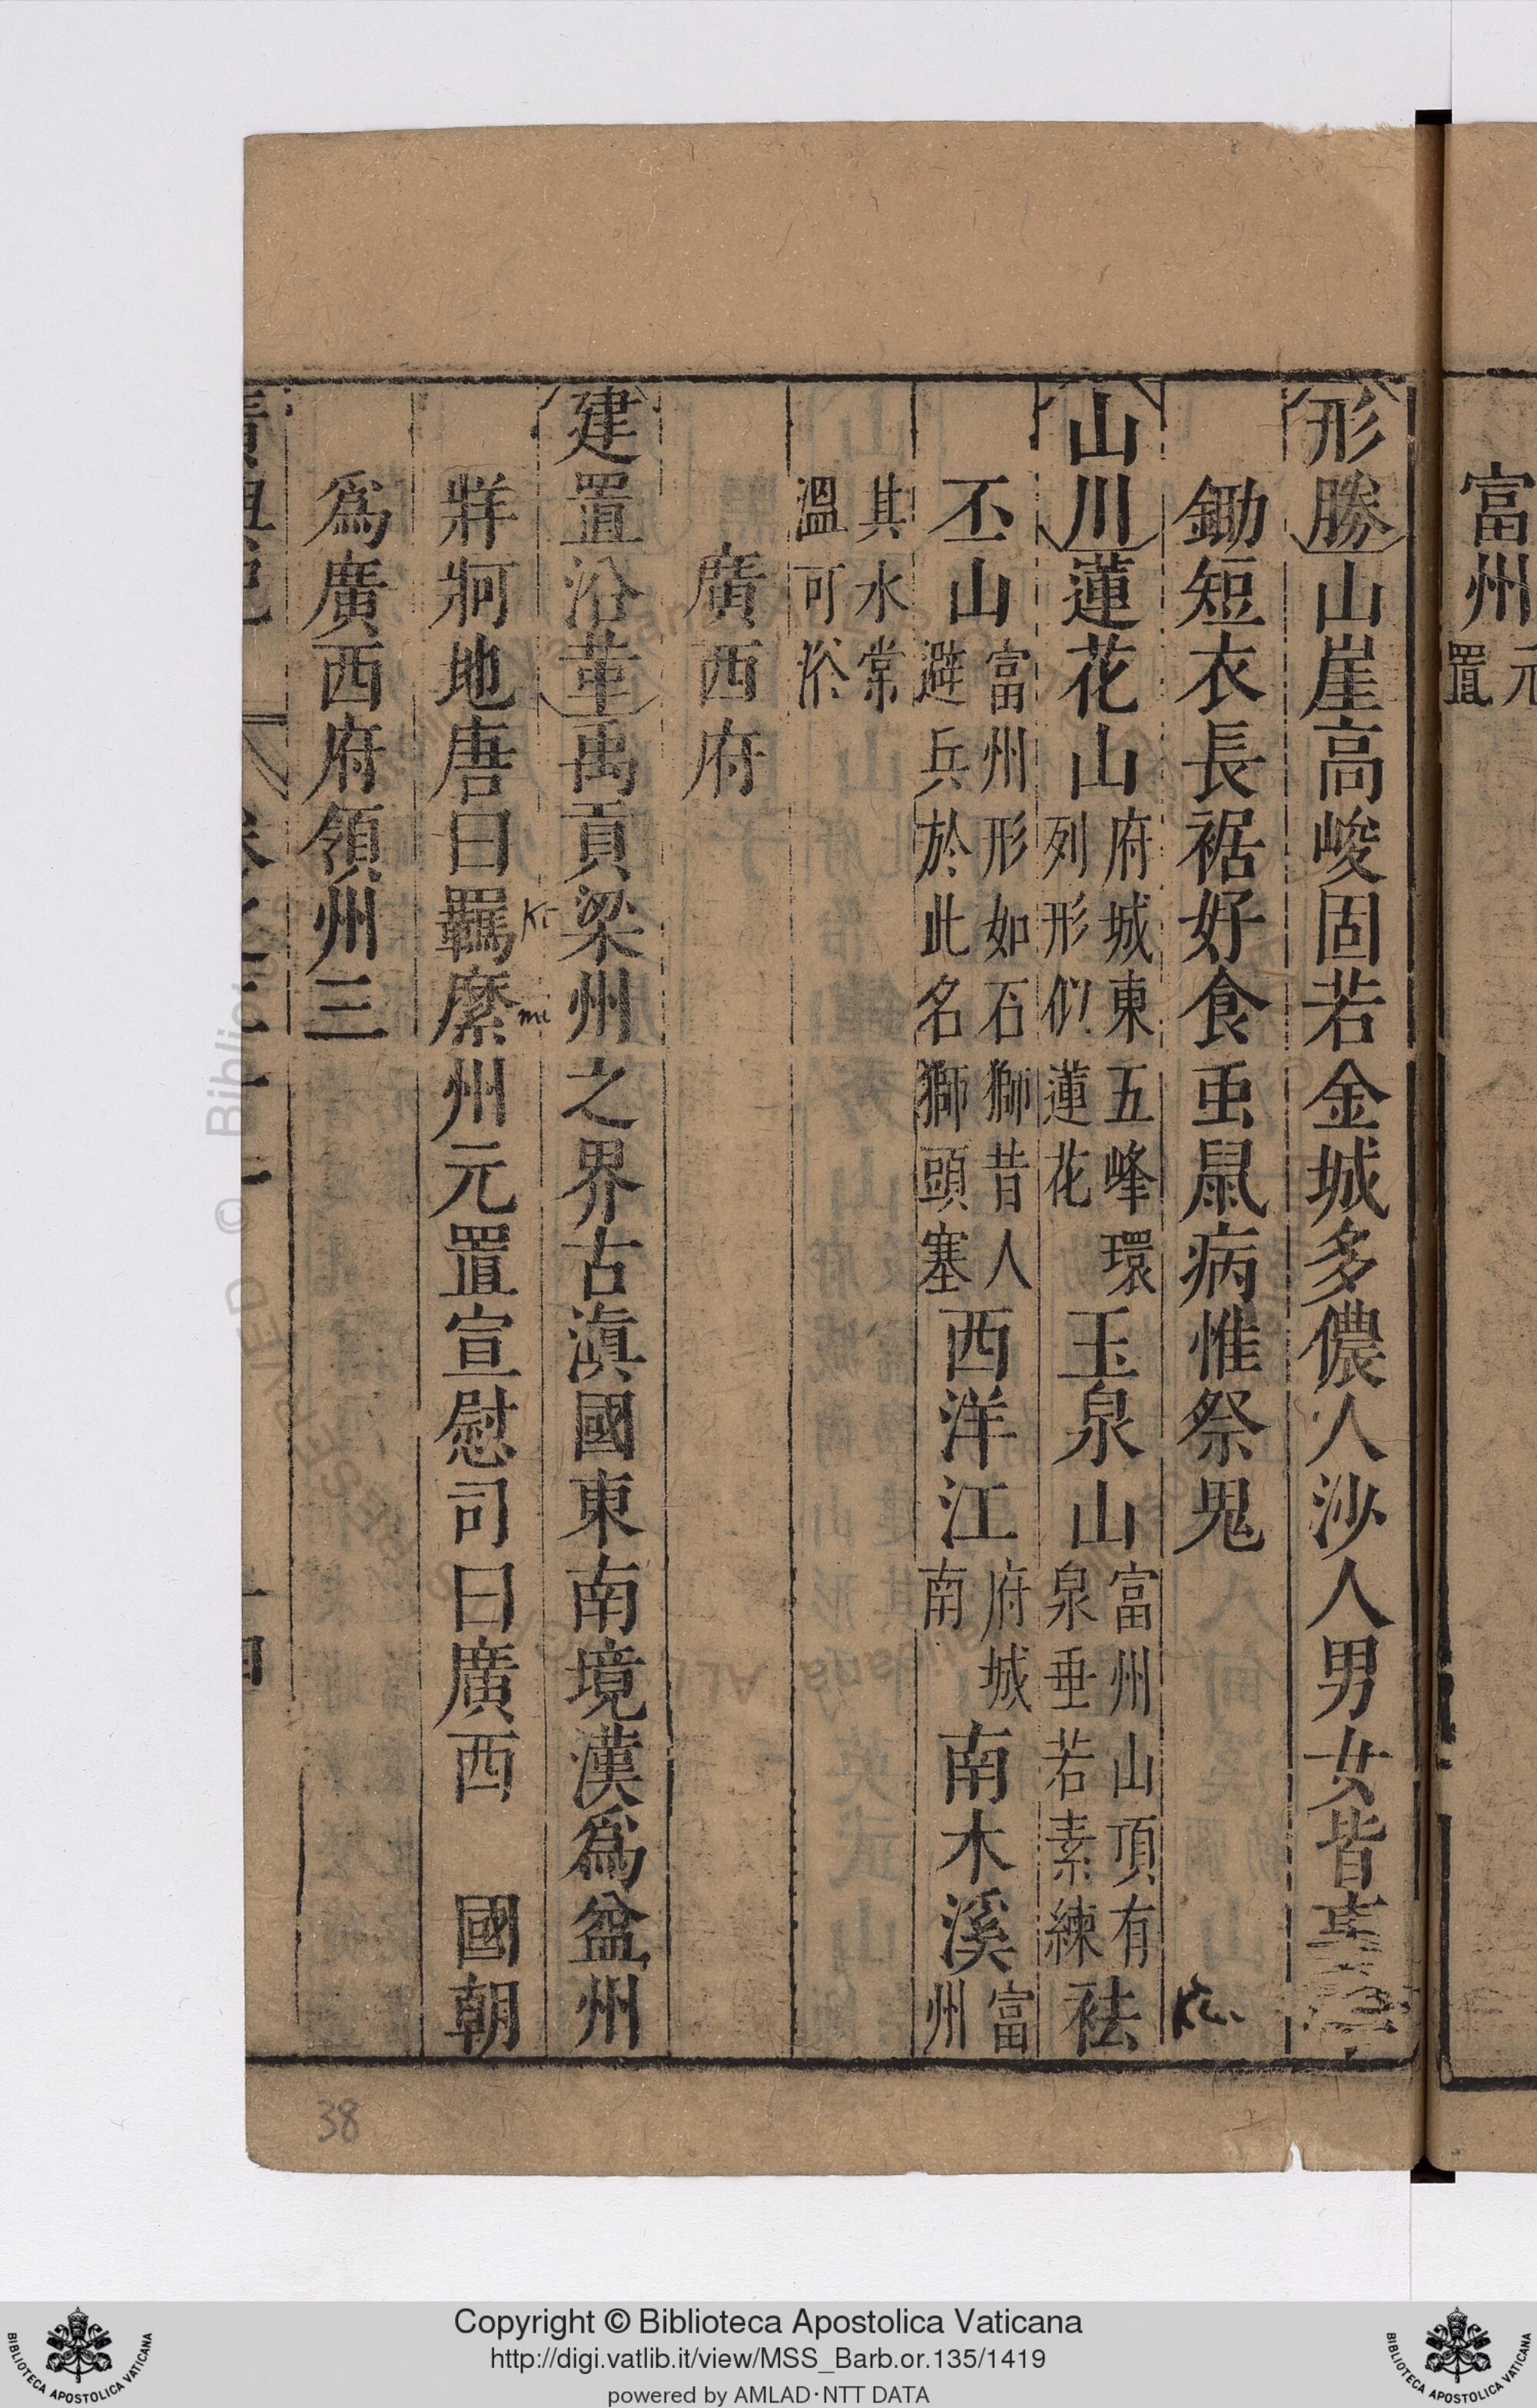 富州元置
形勝山崖高峻固若金城多儂人沙人男女皆
鋤短衣長裾好食䖝鼠病惟祭鬼
山川蓮花山府城東五峰環列形似蓮花玉泉山富州山頂有泉垂若素練祛
丕山富州形如石獅昔人避兵於此名獅頭塞西洋江府城南南木溪富州
其水常溫可浴
廣西府
建置沿革禹貢梁州之界古滇國東南境漢爲益州
牂牁地唐曰羈縻州元置宣慰司曰廣西 國朝
Ki mi
爲廣西府領州三
38
© Biblioteca
Copyright © Biblioteca Apostolica Vaticana
http://digi.vatlib.it/view/MSS_Barb.or.135/1419
powered by AMLAD·NTT DATA
BIBLIOTECA APOSTOLICA VATICANA
BIBLIOTECA APOSTOLICA VATICANA